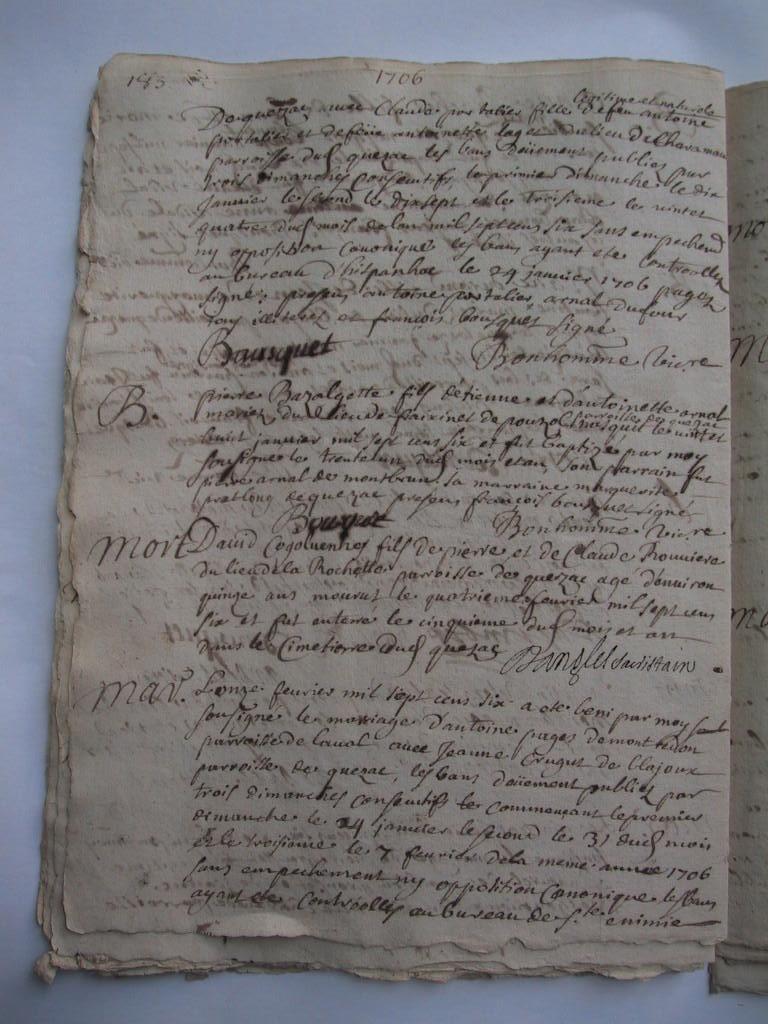 183
1706
legitime et naturelle
De quezac avec Claude portalier fille de feu antoine
portalier et de feüe antoinette du lieu de
parroisse dud quezac les bans deüement publies par
trois dimanches consecutifs, le premier dimanche le dix
janvier le second le dixsept et le troisieme le vintet
quatre dud mois de lan mil sept cens six sans empechemt
ny opposition Canonique les bans ayant ete Controolles
au bureau d'hispanhac le 24 janvier 1706 pages
signé; presens antoine portalier, arnal dufour
tous illiterez et françois bousquet signé
Bousquet
Bonhomme vic.re
B.
pierre Bazalgette fils detienne et d'antoinette arnal
mariez du lieu de de pouzol parroisse de quezac nasquit le vintet
huit janvier mil sept cens six et fut baptizé par moy
sousigné le trente un dud mois et an son parrain fut
pierre arnal de montbrun sa marraine marguerite
pratlong de quezac presens françois bousquet signé
Bousquet
Bonhomme vic.re
Mort
David fils de pierre et de Claude Rouviere
du lieu de la Rochette parroisse de quezac agé d'environ
quinze ans mourut le quatrieme fevrier mil sept cens
six et fut enterré le cinquieme dud mois et an
dans le Cimetierre dud quezac
sacristain
Mar.
L'onze fevrier mil sept cens six a ete beni par moy
sousigné le mariage d'antoine pages de
parroisse de laval avec Jeanne Crugut de blajoux
parroisse de quezac, les bans deüement publies par
trois dimanches consecutifs commencant le premier
dimanche le 24 janvier le second le 31 dud mois
et le troisieme le 7 fevrier de la meme année 1706
sans empechement ny opposition Canonique les bans
ayant ete Controolles au bureau de s.te enimie